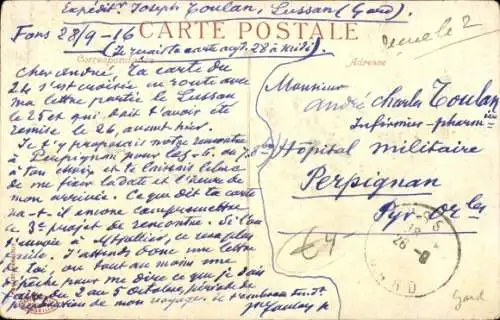 Expédit.r Joseph Toulan, Lussan (Gard).
CARTE POSTALE
Fons 28/9-16
(Je reçois ta carte auj. 28 à midi)
reçue le 2
Correspondance
Adresse
Cher André, Ta carte du
24 s'est croisée en route avec
ma lettre partie de Lussan
le 25 et qui doit t'avoir été
remise le 26, avant hier.
Je t'y proposais notre rencontre
à Perpignan pour les 5, 6, ou 7, 8bre
à ton choix et te laissais le soin
de me fixer la date et l'heure de
mon arrivée. Ce que dit ta carte
va-t-il encore compromettre
ce projet de rencontre. Si l'on
t'envoie à ce sera plus
facile. J'attends donc une lettre
de toi, ou tout au moins une
dépêche pour me dire ce que je dois
faire, du 2 au 5 Octobre, période de
préparation de mon voyage. Je t'embrasse
Toulan
Monsieur
André Charles Toulan
Infirmier-pharm.ien
Hôpital militaire
Perpignan
Pyr-Or.les
28-9
GARD
Gard